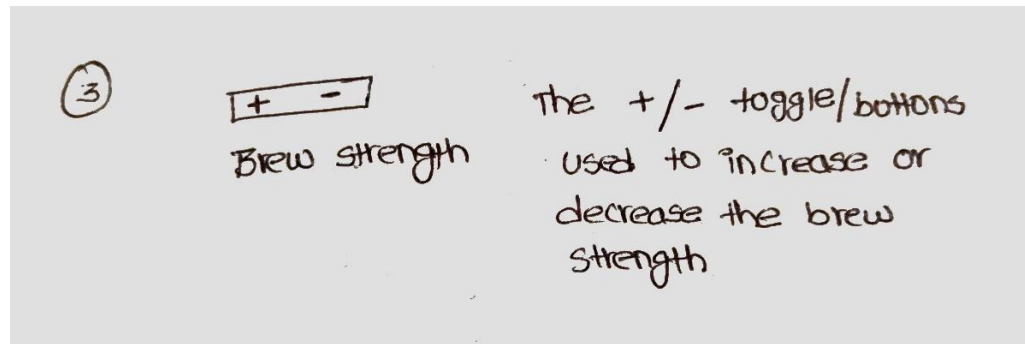 3
+ -
Brew strength
The +/- toggle/bottons
used to increase or
decrease the brew
strength